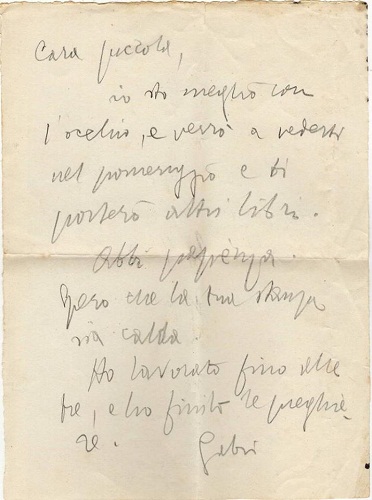 Cara piccola,
io sto meglio con
l'occhio, e verrò a vederti
nel pomeriggio e ti
porterò altri libri.
Abbi pazienza.
Spero che la tua stanza
sia calda.
Ho lavorato fino alle
tre, e ho finito le preghie-
re. Gabri